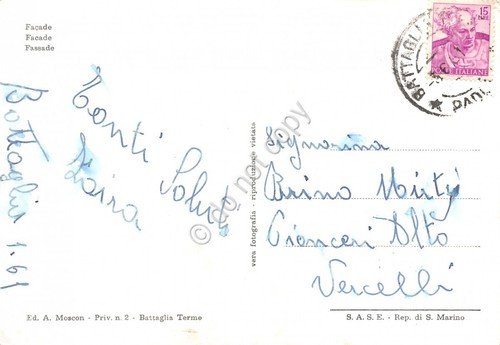 Façade
Facade
Fassade
Battaglia 1.61
Tanti Saluti
Zaira
vera fotografia - riproduzione vietata
Signorina
Brino Mirty
Cioncari Alto
Vercelli
Ed. A. Moscon - Priv. n. 2 - Battaglia Terme
S. A. S. E. - Rep. di S. Marino
15
LIRE
POSTE ITALIANE
BATTAGLIA
do not copy